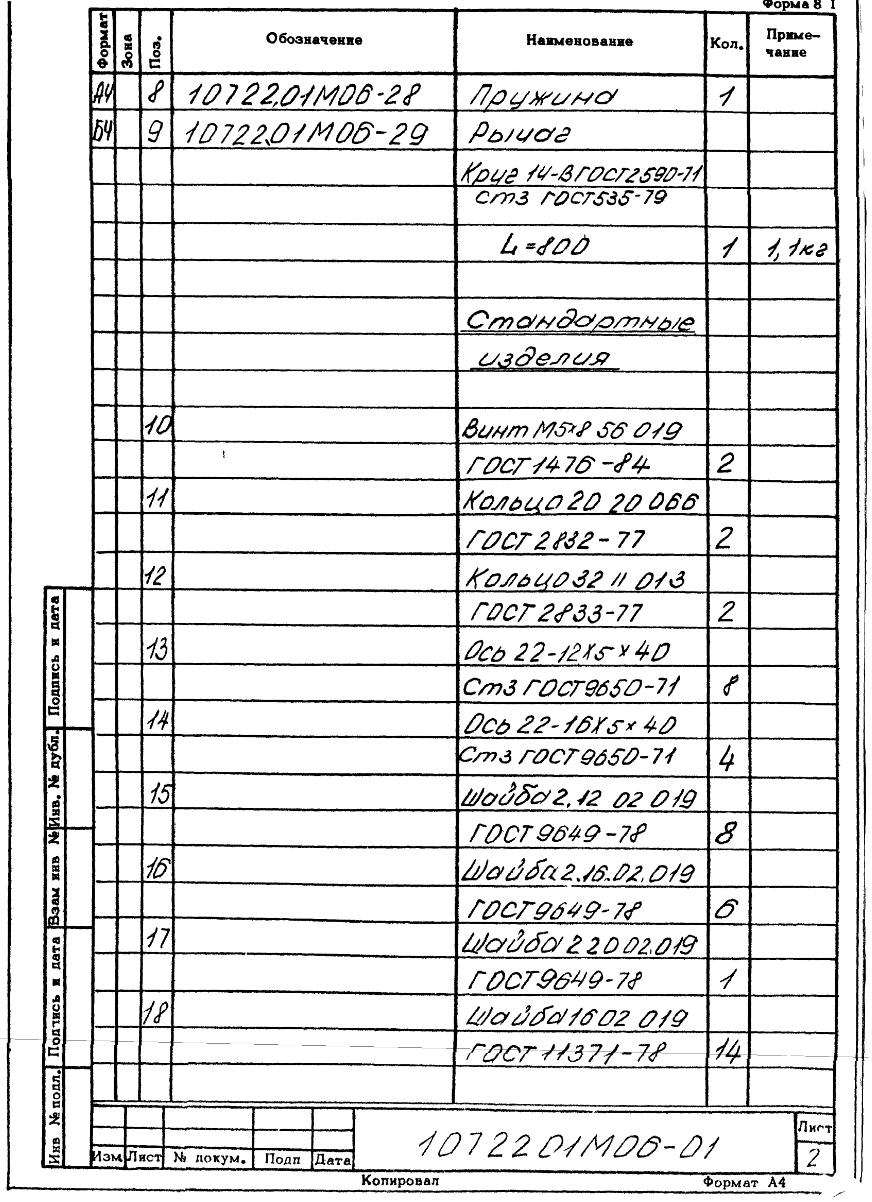 Форма 8 1
Формат Зона Поз. Обозначение Наименование Кол. Приме-
чание
А4 8 10722.01М06-28 Пружина 1
БЧ 9 10722.01М06-29 Рычаг
Круг 14-В ГОСТ2590-71
Ст3 ГОСТ535-79
L=800 1 1,1кг
Стандартные
изделия
10 Винт М5×8 56 019
ГОСТ 1476-84 2
11 Кольцо 20 20 066
ГОСТ 2832-77 2
12 Кольцо 32 11 013
ГОСТ 2833-77 2
13 Ось 22-12×5×40
Ст3 ГОСТ9650-71 8
14 Ось 22-16×5×40
Ст3 ГОСТ9650-71 4
15 Шайба 2.12 02 019
ГОСТ 9649-78 8
16 Шайба 2.16.02.019
ГОСТ9649-78 6
17 Шайба 2 20 02.019
ГОСТ9649-78 1
18 Шайба 16 02 019
ГОСТ 11371-78 14
Подпись и дата
Инв. № дубл.
Взам инв №
Подпись и дата
Инв № подл.
Изм Лист № докум. Подп Дата
10722 01М06-01
Лист
2
Копировал Формат А4